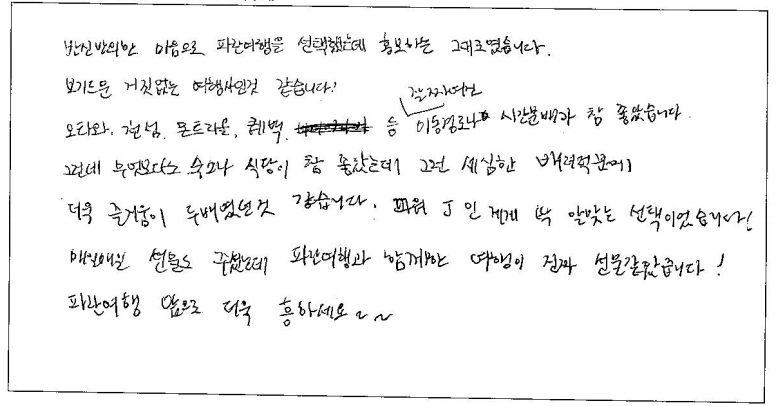 반신반의한 마음으로 파란여행을 선택했는데 홍보하는 그대로였습니다.
보기드문 거짓없는 여행사인것 같습니다!
오타와. 천섬. 몬트리올. 퀘벡. 등 이동경로나 시간분배가 참 좋았습니다
그런데 무엇보다도 숙소나 식당이 참 좋았는데 그런 세심한 배려덕분에
더욱 즐거움이 두배였던것 같습니다. 파워 J인 제게 딱 알맞는 선택이었습니다!
매일매일 선물도 주셨는데 파란여행과 함께한 여행이 진짜 선물같았습니다!
파란여행 앞으로 더욱 흥하세요~~